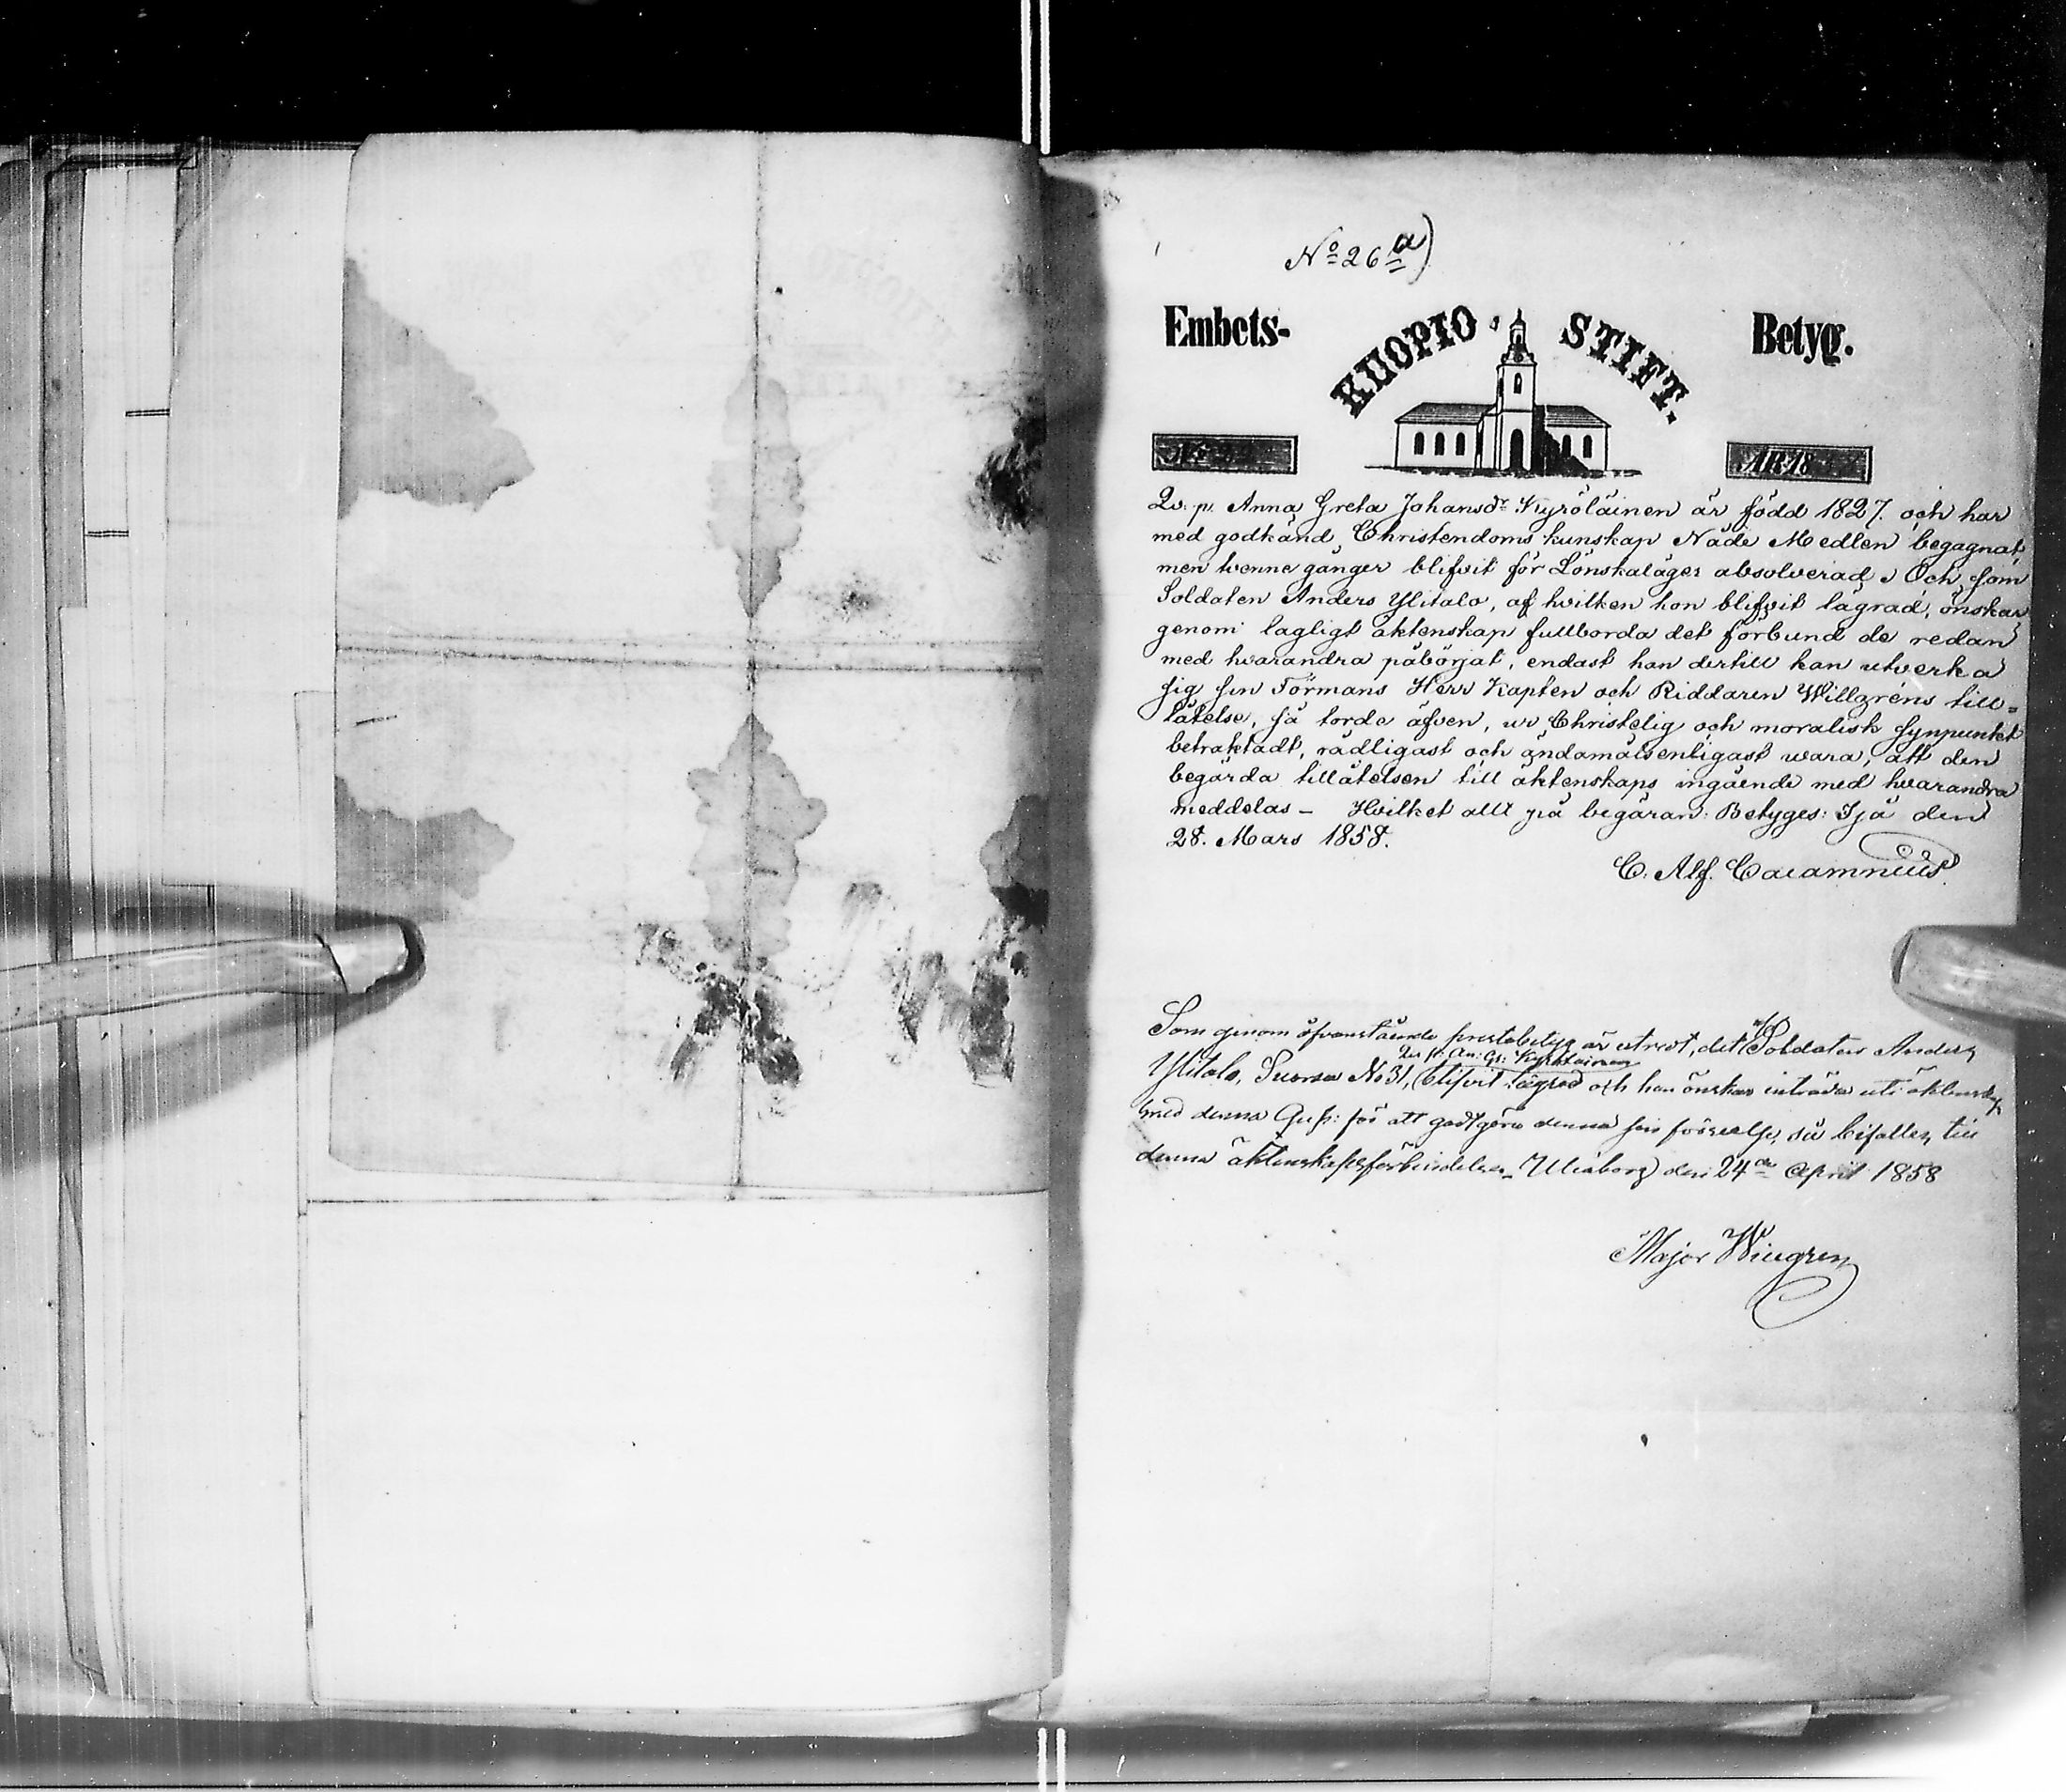 No 26 a)
Embets- KUOPIO STIFT. Betyg.
No ÅR 18
Qv. p. Anna Greta Johansdr Kyröläinen är född 1827. och har
med godkänd Christendoms kunskap Nåde Medlen begagnat,
men tvenne gånger blifvit för Lönskaläger absolverad. Och som
Soldaten Anders Ylitalo, af hvilken hon blifvit lägrad, önskar
genom lagligt äktenskap fullborda det förbund de redan
med hvarandra påbörjat, endast han dertill kan utverka
sig sin Förmans Herr Kapten och Riddaren Willgréns till-
låtelse, så torde äfven, ur Christelig och moralisk synpunkt
betraktadt, rådligast och ändamålsenligast vara, att den
begärda tillåtelsen till äktenskaps ingående med hvarandra
meddelas – Hvilket allt på begäran: Betyges: Ijå den
28. Mars 1858.
C. Alf. Cajamnius
Som genom ofvanstående prestabetyg är utredt, det af Soldaten Anders
Qv. p. An: Gr: Kyröläinen
Ylitalo, Suorsa No 31, blifvit lägrad och han önskar inträda uti äktenskap
med denna Qvp: för att godtgöra denna sin förseelse, så bifalles till
denna äktenskapsförbindelse. Uleåborg den 24de April 1858
Major Willgren